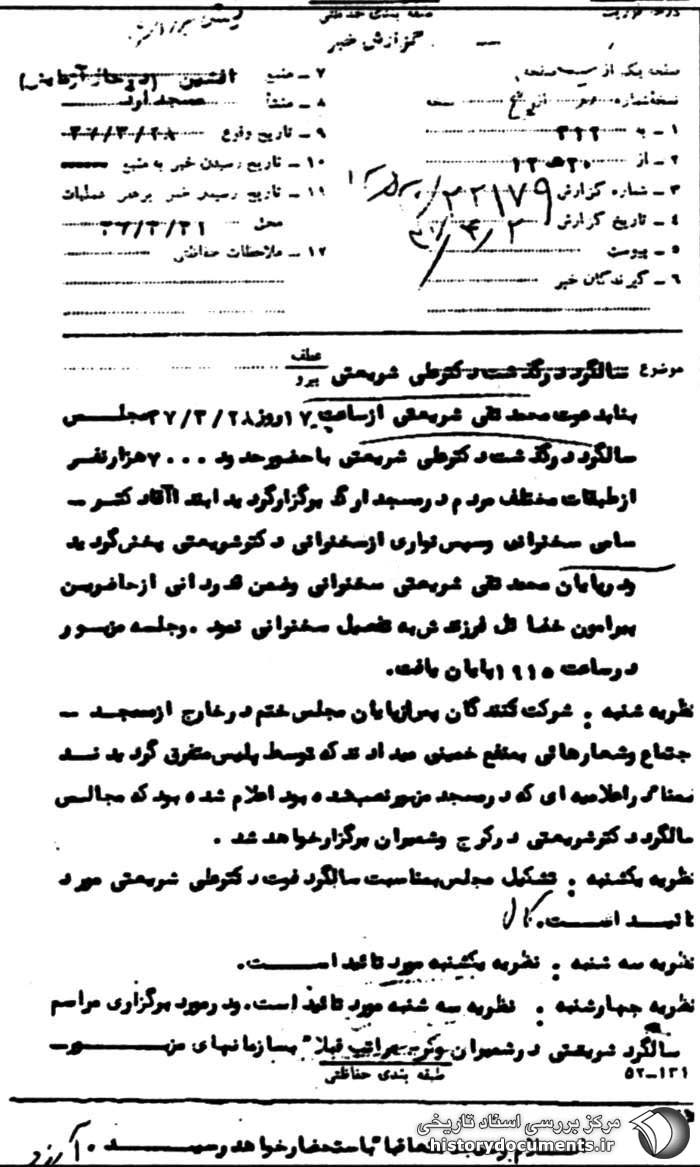 طبقه بندی حفاظتی
گزارش خبر
صفحه یک از صفحه
نسخه شماره از پنج نسخه
۱ – به ۳۱۲
۲ – از ۲۰ ه ۱۲
۳ – شماره گزارش ۲۲۱۷۹
۴ – تاریخ گزارش
۵ – پیوست
۶ – گیرندگان خبر
۷ – منبع
۸ – منشأ مسجد ارک
۹ – تاریخ وقوع ۳۷/۳/۲۸
۱۰ – تاریخ رسیدن خبر به منبع
۱۱ – تاریخ رسیدن خبر برهبر عملیات
محل ۳۷/۳/۳۱
۱۲ – ملاحظات حفاظتی
موضوع سالگرد درگذشت دکترعلی شریعتی عطف پیرو
بنابدعوت محمد تقی شریعتی ازساعت ۱۷روز۳۷/۳/۲۸مجلس
سالگرد درگذشت دکترعلی شریعتی باحضورحدود ۷۰۰۰هزارنفر
ازطبقات مختلف مردم درمسجد ارک برگزارگردید ابتدا آقادکتر –
سامی سخنرانی وسپس نواری ازسخنرانی دکترشریعتی پخش گردید
ودرپایان محمد تقی شریعتی سخنرانی وضمن قدردانی ازحاضرین
پیرامون خصائل فرزندش به تفصیل سخنرانی نمود .وجلسه مزبور
درساعت ۱۹۱۵پایان یافت.
نظریه شنبه : شرکت کنندگان پس ازپایان مجلس ختم درخارج ازمسجد –
اجتماع وشعارهائی بنفع خمینی میدادند که توسط پلیس متفرق گردیدند
ضمنا" دراعلامیه ای که درمسجد مزبورنصب شده بود اعلام شده بود که مجالس
سالگرد دکترشریعتی درکرج وشمیران برگزارخواهد شد .
نظریه یکشنبه : تشکیل مجلس بمناسبت سالگرد فوت دکترعلی شریعتی مورد
تائید است.
نظریه سه شنبه : نظریه یکشنبه مورد تائید است.
نظریه چهارشنبه : نظریه سه شنبه مورد تائید است.ودرمورد برگزاری مراسم
سالگرد شریعتی درشمیران وکرج مراتب قبلا" بسازمانهای مزبور–
۱۳۱–۵۲ طبقه بندی حفاظتی
باستحضارخواهد رسید .
مرکز بررسی اسناد تاریخی
historydocuments.ir